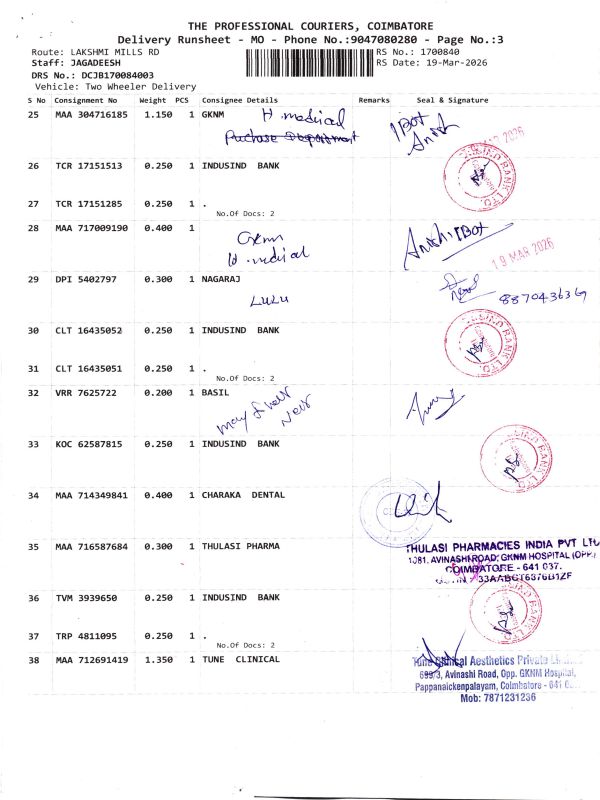 THE PROFESSIONAL COURIERS, COIMBATORE
Delivery Runsheet - MO - Phone No.:9047080280 - Page No.:3
Route: LAKSHMI MILLS RD RS No.: 1700840
Staff: JAGADEESH RS Date: 19-Mar-2026
DRS No.: DCJB170084003
Vehicle: Two Wheeler Delivery
S No Consignment No Weight PCS Consignee Details Remarks Seal & Signature
25 MAA 304716185 1.150 1 GKNM H. medical
Puchase Department
26 TCR 17151513 0.250 1 INDUSIND BANK
27 TCR 17151285 0.250 1 .
No.Of Docs: 2
28 MAA 717009190 0.400 1
Gknm
H. medical
19 MAR 2026
29 DPI 5402797 0.300 1 NAGARAJ
LULU
30 CLT 16435052 0.250 1 INDUSIND BANK
31 CLT 16435051 0.250 1 .
No.Of Docs: 2
32 VRR 7625722 0.200 1 BASIL
33 KOC 62587815 0.250 1 INDUSIND BANK
34 MAA 714349841 0.400 1 CHARAKA DENTAL
35 MAA 716587684 0.300 1 THULASI PHARMA
THULASI PHARMACIES INDIA PVT LTD
1081, AVINASHI ROAD, GKNM HOSPITAL (OPP)
COIMBATORE - 641 037.
36 TVM 3939650 0.250 1 INDUSIND BANK
37 TRP 4811095 0.250 1 .
No.Of Docs: 2
38 MAA 712691419 1.350 1 TUNE CLINICAL
Tune Clinical Aesthetics Private
699/3, Avinashi Road, Opp. GKNM Hospital,
Pappanaickenpalayam, Coimbatore - 641
Mob: 7871231236